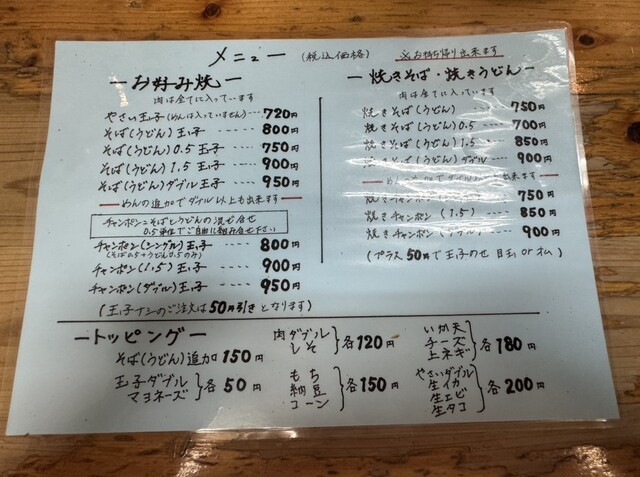 メニュー (税込価格) ※お持ち帰り出来ます
ーお好み焼ー
肉は全てに入っています
やさい玉子(めんは入っていません)---720円
そば(うどん)玉子 ---- 800円
そば(うどん)0.5 玉子 ---- 750円
そば(うどん)1.5 玉子 ---- 900円
そば(うどん)ダブル 玉子 ---- 950円
めんの追加でダブル以上も出来ます
チャンポン=そばとうどんの混ぜ合せ
0.5単位でご自由に組み合せ下さい
チャンポン(シングル)玉子 ---- 800円
(そば0.5+うどん0.5のみ)
チャンポン(1.5)玉子 ---- 900円
チャンポン(ダブル)玉子 ---- 950円
(玉子ナシのご注文は50円引きとなります)
ー焼きそば・焼きうどんー
肉は全てに入っています
焼きそば(うどん) 750円
焼きそば(うどん)0.5 --- 700円
焼きそば(うどん)1.5 -- 850円
焼きそば(うどん)ダブル -- 900円
めんの追加でダブル以上も出来ます
焼きチャンポン 750円
焼きチャンポン (1.5) --- 850円
焼きチャンポン(ダブル) --- 900円
(プラス50円で玉子のせ 目玉 or オム)
ートッピングー
そば(うどん)追加 150円
玉子ダブル
マヨネーズ
各50円
肉ダブル
しそ
各120円
もち
納豆
コーン
各150円
いか天
チーズ
上ネギ
各180円
やさいダブル
生イカ
生エビ
生タコ
各200円